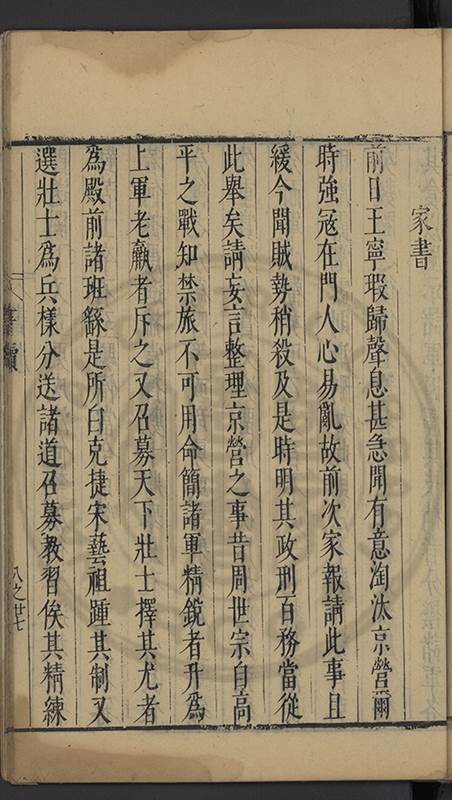 家書
前日王寧瑕歸聲息甚急聞有意淘汰京營爾
時強寇在門人心易亂故前次家報請此事且
緩今聞賊勢稍殺及是時明其政刑百務當從
此舉矣請妄言整理京營之事昔周世宗自高
平之戰知禁旅不可用命簡諸軍精銳者升為
上軍老羸者斥之又召募天下壯士擇其尤者
為殿前諸班繇是所向克捷宋藝祖踵其制又
選壯士為兵樣分送諸道召募教習俟其精練
書牘
八之廿七